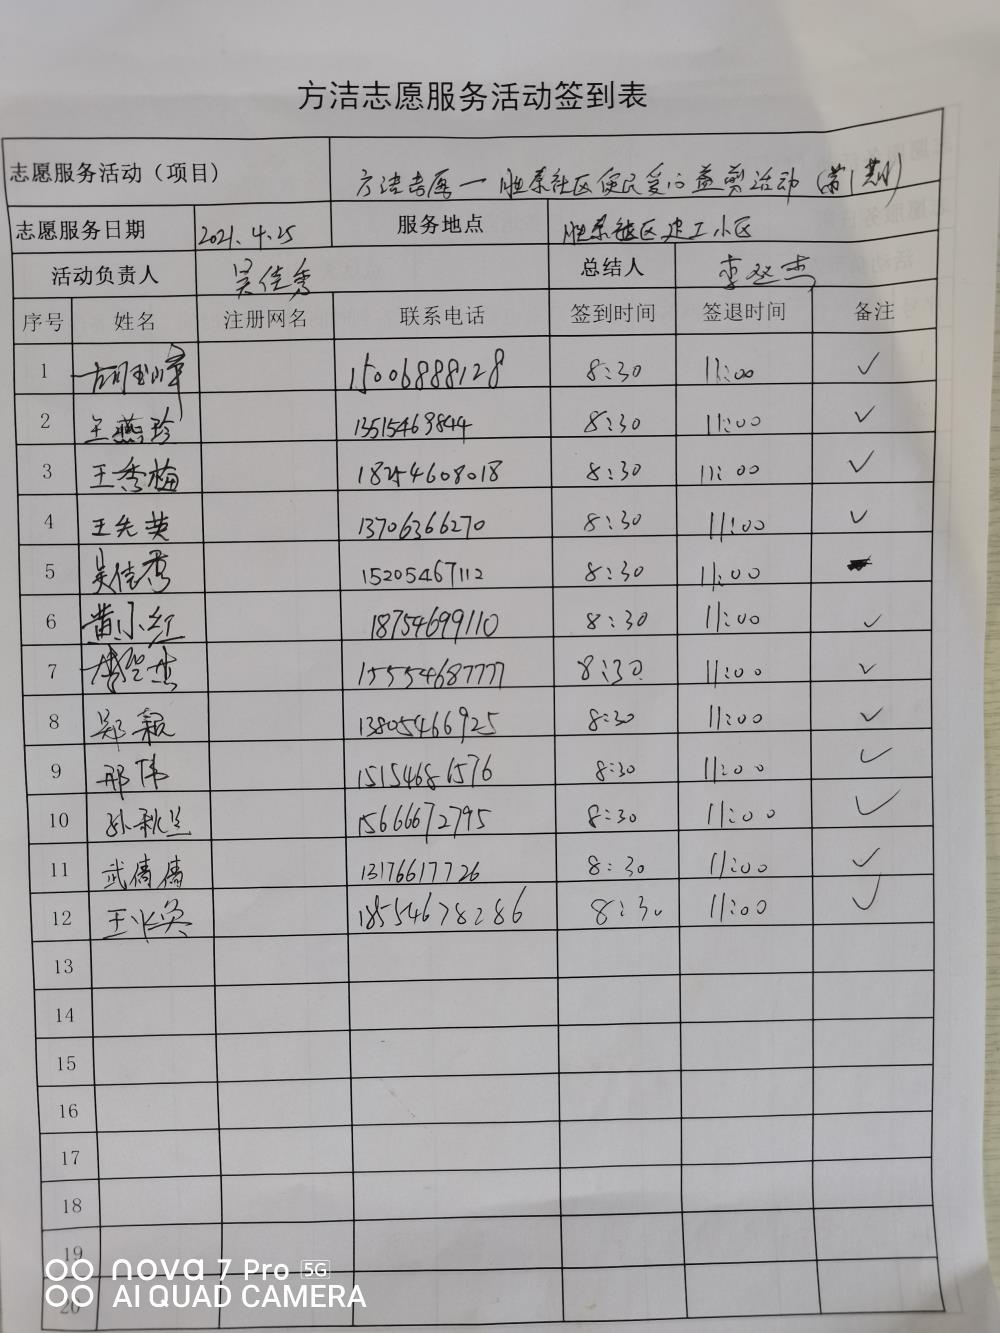 方洁志愿服务活动签到表
志愿服务活动（项目） 社区便民爱心益剪活动
志愿服务日期 2021.4.25 服务地点 社区建工小区
活动负责人 吴佳秀 总结人
序号 姓名 注册网名 联系电话 签到时间 签退时间 备注
1 15006888128 8:30 11:00 ✓
2 王燕珍 13515469844 8:30 11:00 ✓
3 王秀梅 18254608018 8:30 11:00 ✓
4 王先英 13706366270 8:30 11:00 ✓
5 吴佳秀 15205467112 8:30 11:00
6 黄小红 18754699110 8:30 11:00 ✓
7 15554687777 8:30 11:00 ✓
8 郑颖 13805466925 8:30 11:00 ✓
9 邢伟 15154681576 8:30 11:00 ✓
10 孙秋兰 15666672795 8:30 11:00 ✓
11 武倩倩 13176617726 8:30 11:00 ✓
12 18554678286 8:30 11:00 ✓
13
14
15
16
17
18
19
20
nova 7 Pro 5G
AI QUAD CAMERA